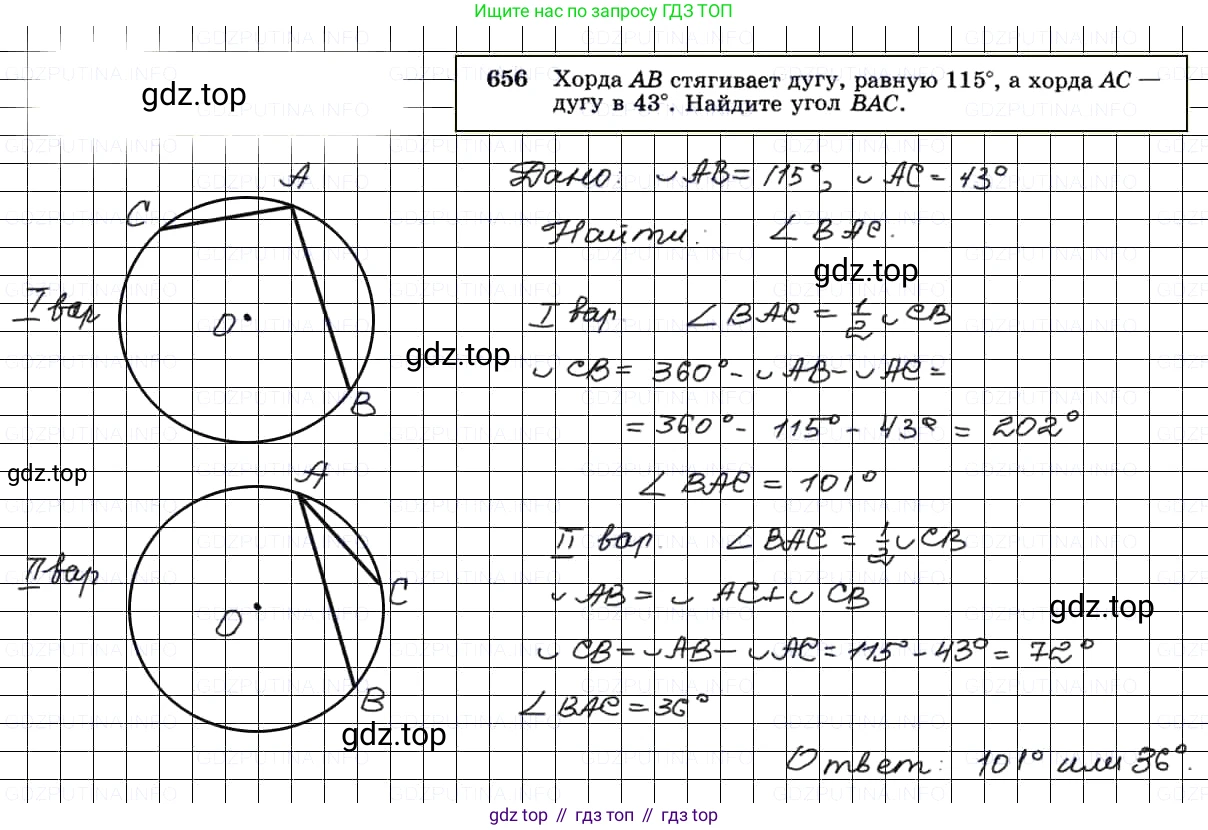 Ищите нас по запросу ГДЗ ТОП
GDZPUTINA.INFO
gdz.top
656 Хорда AB стягивает дугу, равную 115°, а хорда AC —
дугу в 43°. Найдите угол BAC.
Дано: ◡ AB = 115°, ◡ AC = 43°
Найти: ∠ BAC.
gdz.top
I вар
C
A
O
B
I вар. ∠ BAC = 1/2 ◡ CB
gdz.top
◡ CB = 360° - ◡ AB - ◡ AC =
= 360° - 115° - 43° = 202°
gdz.top
∠ BAC = 101°
II вар
A
C
O
B
II вар. ∠ BAC = 1/2 ◡ CB
◡ AB = ◡ AC + ◡ CB
gdz.top
◡ CB = ◡ AB - ◡ AC = 115° - 43° = 72°
∠ BAC = 36°
gdz.top
Ответ: 101° или 36°.
gdz top // гдз топ // gdz.top